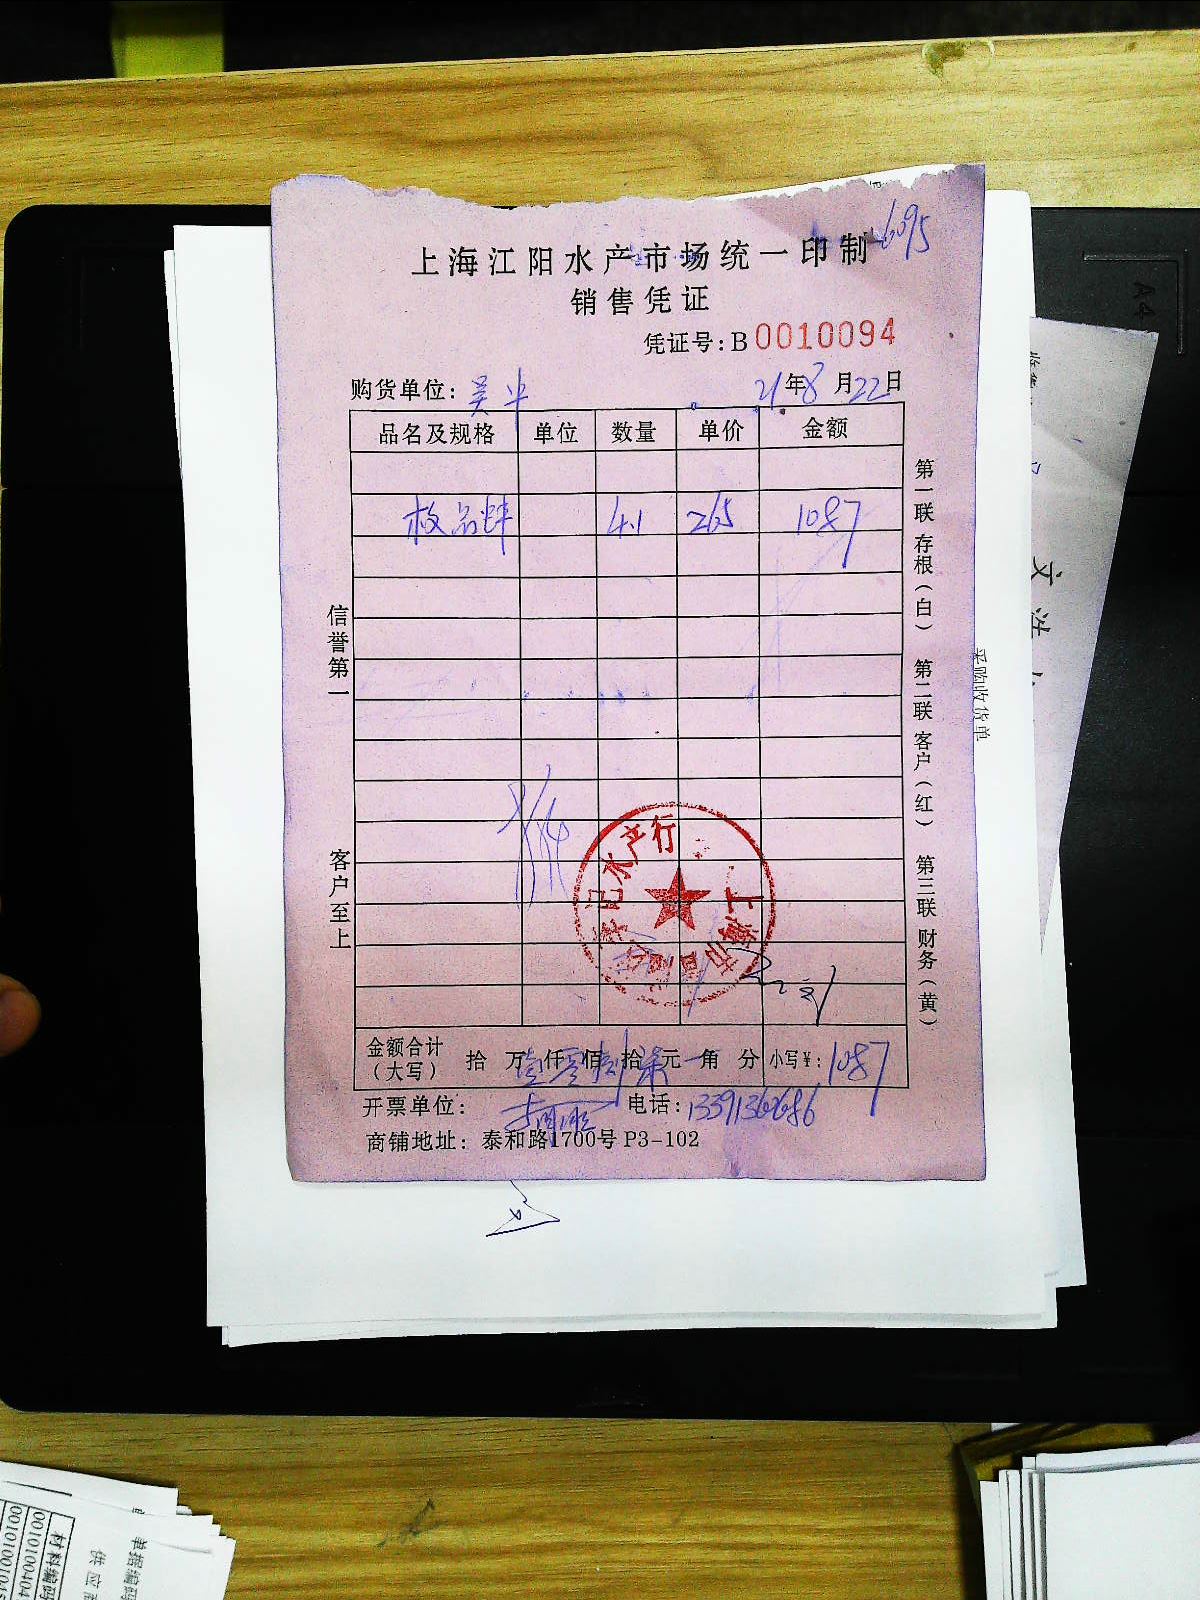 6095
上海江阳水产市场统一印制
销售凭证
凭证号:B0010094
购货单位: 21年8月22日
品名及规格 单位 数量 单价 金额
4.1 265 1087
信誉第一
客户至上
第一联 存根(白) 第二联 客户(红) 第三联 财务(黄)
水产行
上海市
金额合计(大写) 拾 万 仟 佰 拾 元 角 分 小写¥: 1087
开票单位: 电话: 13391362686
商铺地址: 泰和路1700号 P3-102
采购收货单
A4
材料编码
供应商
单据编码